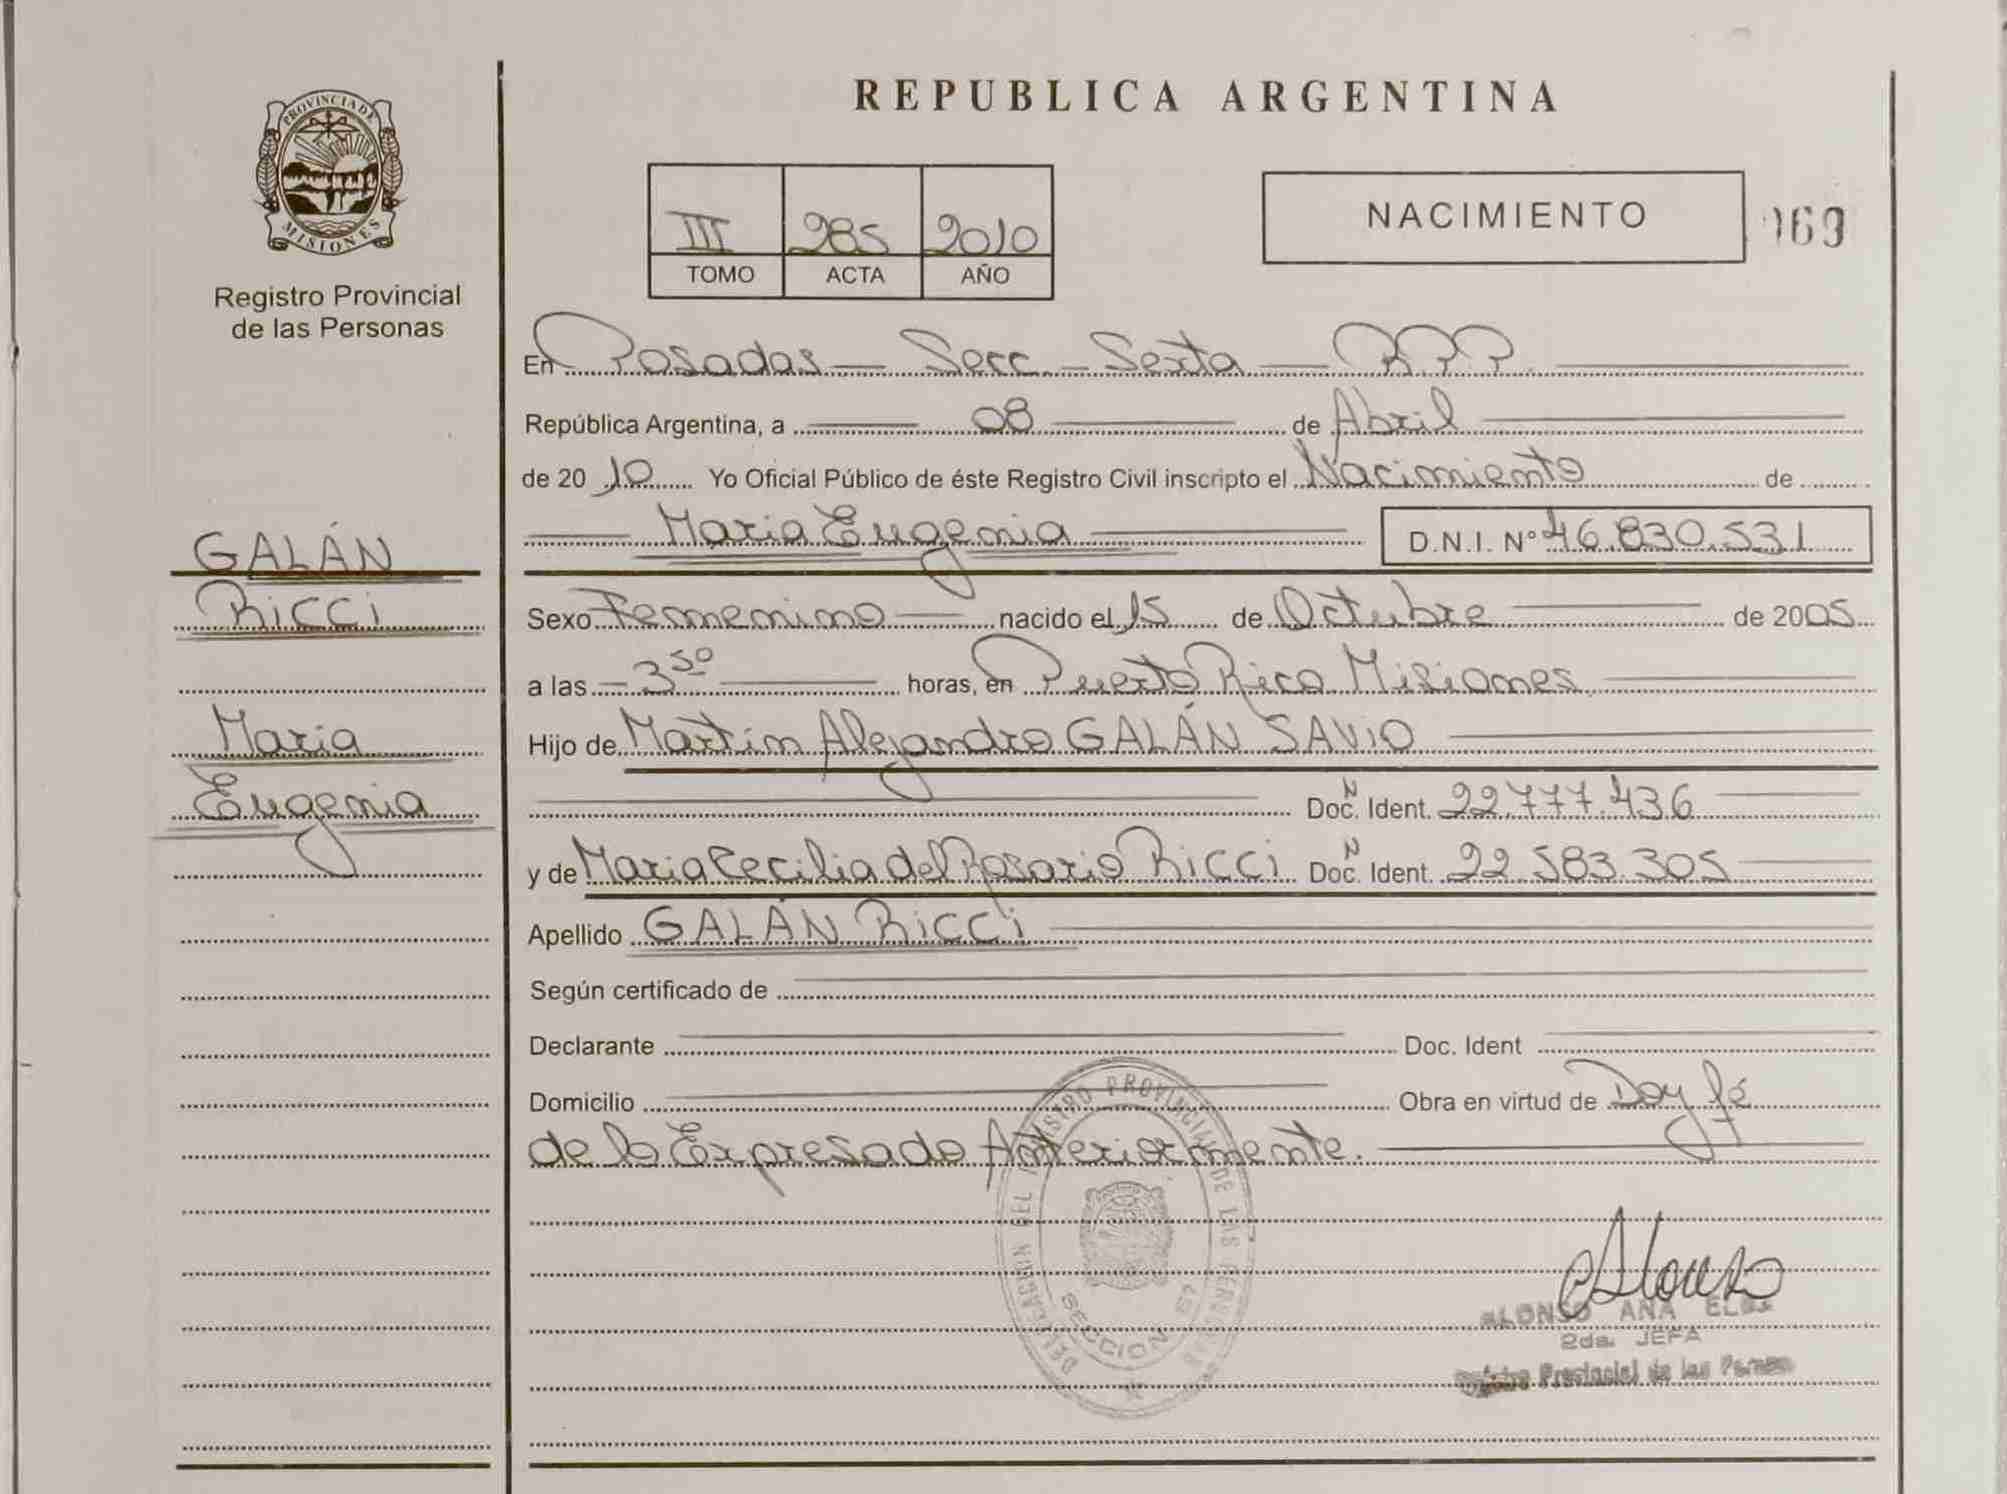 REPUBLICA ARGENTINA
PROVINCIA DE
MISIONES
Registro Provincial
de las Personas
III 285 2010
TOMO ACTA AÑO
NACIMIENTO
169
En Posadas - Secc. - Sexta - R.P.P.
República Argentina, a 08 de Abril
de 20 10 Yo Oficial Público de éste Registro Civil inscripto el Nacimiento de
Maria Eugenia D.N.I. Nº 46.830.531
GALÁN
RICCI
Maria
Eugenia
Sexo Femenino nacido el 15 de Octubre de 2005
a las - 3⁵⁰ horas, en Puerto Rico Misiones
Hijo de Martín Alejandro GALÁN SAVIO
Doc. N Ident. 22.777.436
y de Maria Cecilia del Rosario RICCI Doc. N Ident. 22.583.305
Apellido GALÁN RICCI
Según certificado de
Declarante Doc. Ident
Domicilio Obra en virtud de Doy fé
de lo Expresado Anteriormente.
DELEGACION DEL REGISTRO PROVINCIAL DE LAS PERSONAS
SECCION 6ª
Alonso
ALONSO ANA ELBA
2da. JEFA
Registro Provincial de las Personas